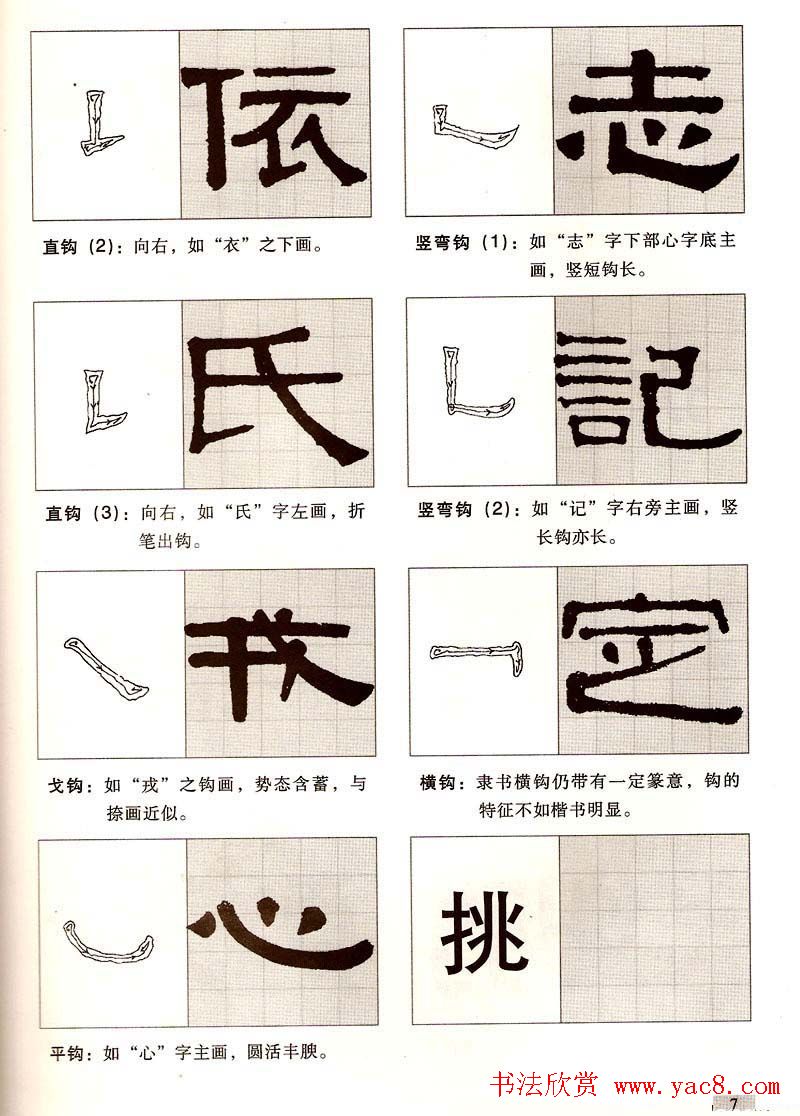 依
直钩（2）：向右，如“衣”之下画。
志
竖弯钩（1）：如“志”字下部心字底主
画，竖短钩长。
氏
直钩（3）：向右，如“氏”字左画，折
笔出钩。
記
竖弯钩（2）：如“记”字右旁主画，竖
长钩亦长。
戎
戈钩：如“戎”之钩画，势态含蓄，与
捺画近似。
定
横钩：隶书横钩仍带有一定篆意，钩的
特征不如楷书明显。
心
平钩：如“心”字主画，圆活丰腴。
挑
书法欣赏 www.yac8.com
7